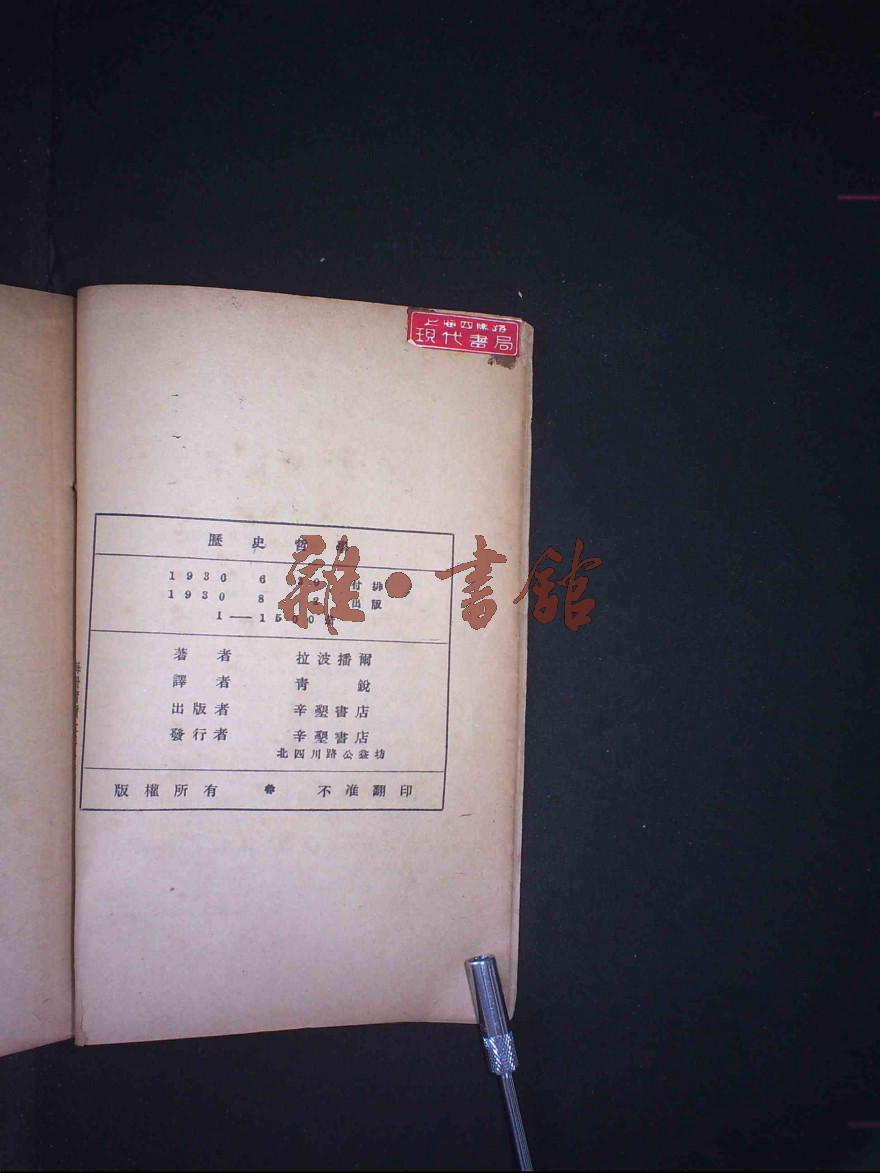 上海四馬路
現代書局
歷史哲學
1930 6 付排
1930 8 出版
1—1500
著者 拉波播爾
譯者 青銳
出版者 辛墾書店
發行者 辛墾書店
北四川路公益坊
版權所有 不准翻印
雜·書館